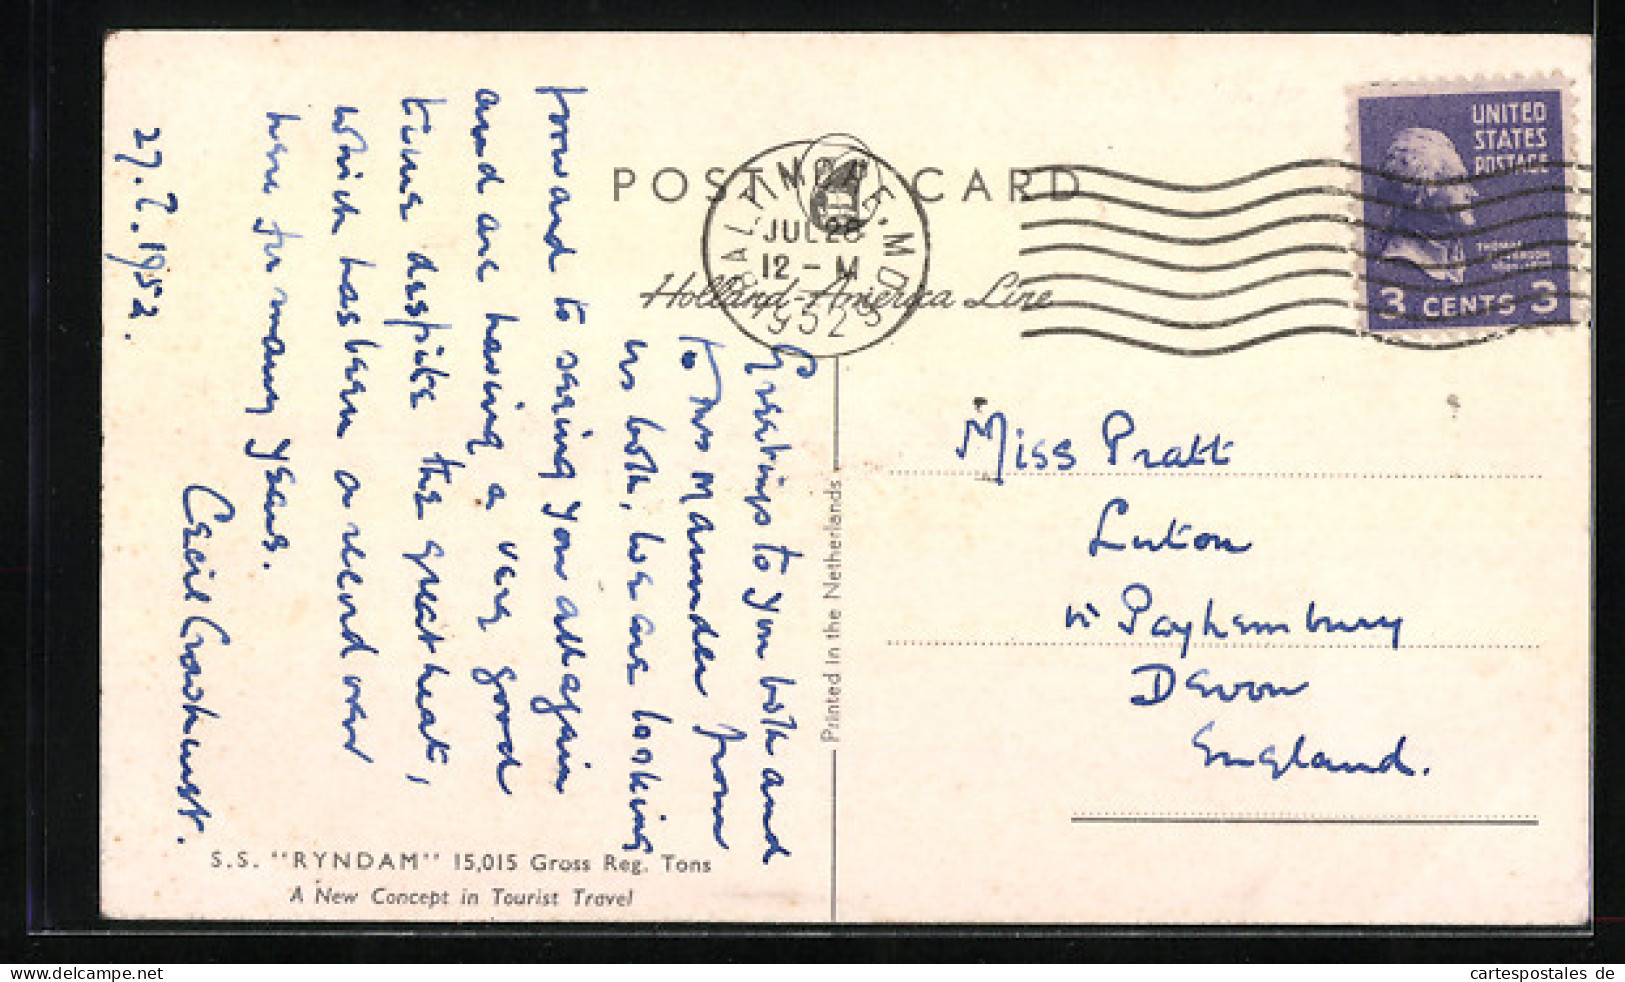 POST CARD
Holland-America Line
BALTIMORE, MD.
JUL 28
12 - M
1952
UNITED
STATES
POSTAGE
THOMAS
JEFFERSON
3 CENTS 3
Greetings to you both and
to Mrs Maunder from
us both, we are looking
forward to seeing you all again
and are having a very good
time despite the great heat,
which has been a record over
here for many years.
Cecil Crowhurst.
27.7.1952.
Miss Pratt
Luton
nr Payhembury
Devon
England.
Printed in the Netherlands
S.S. "RYNDAM" 15,015 Gross Reg. Tons
A New Concept in Tourist Travel
cartespostales de